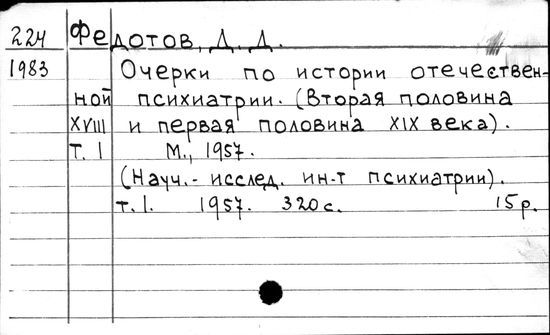 224 Федотов, Д. Д.
1983 Очерки по истории отечествен-
ной психиатрии. (Вторая половина
XVIII и первая половина XIX века).
Т. I М., 1957.
(Науч.- исслед. ин-т психиатрии).
т. I. 1957. 320 с. 15 р.